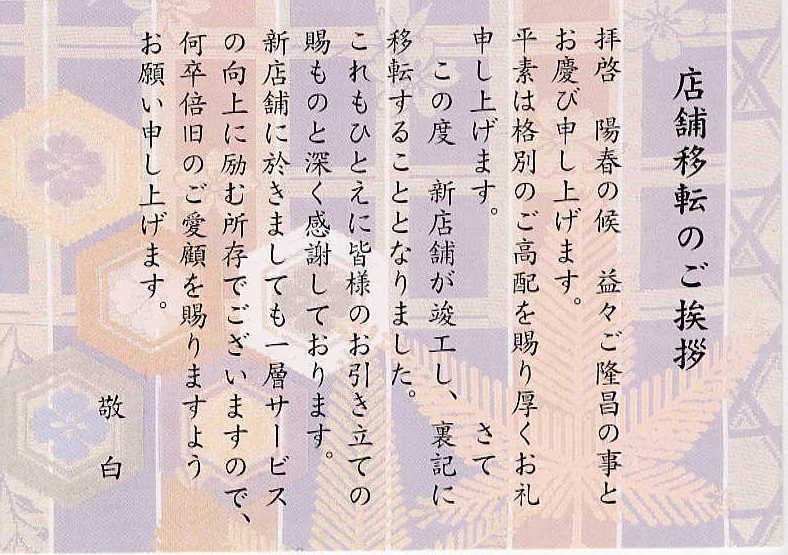 店舗移転のご挨拶
拝啓　陽春の候　益々ご隆昌の事と
お慶び申し上げます。
平素は格別のご高配を賜り厚くお礼
申し上げます。　　　　　　　さて
　この度　新店舗が竣工し、裏記に
移転することとなりました。
これもひとえに皆様のお引き立ての
賜ものと深く感謝しております。
新店舗に於きましても一層サービス
の向上に励む所存でございますので、
何卒倍旧のご愛顧を賜りますよう
お願い申し上げます。
敬白